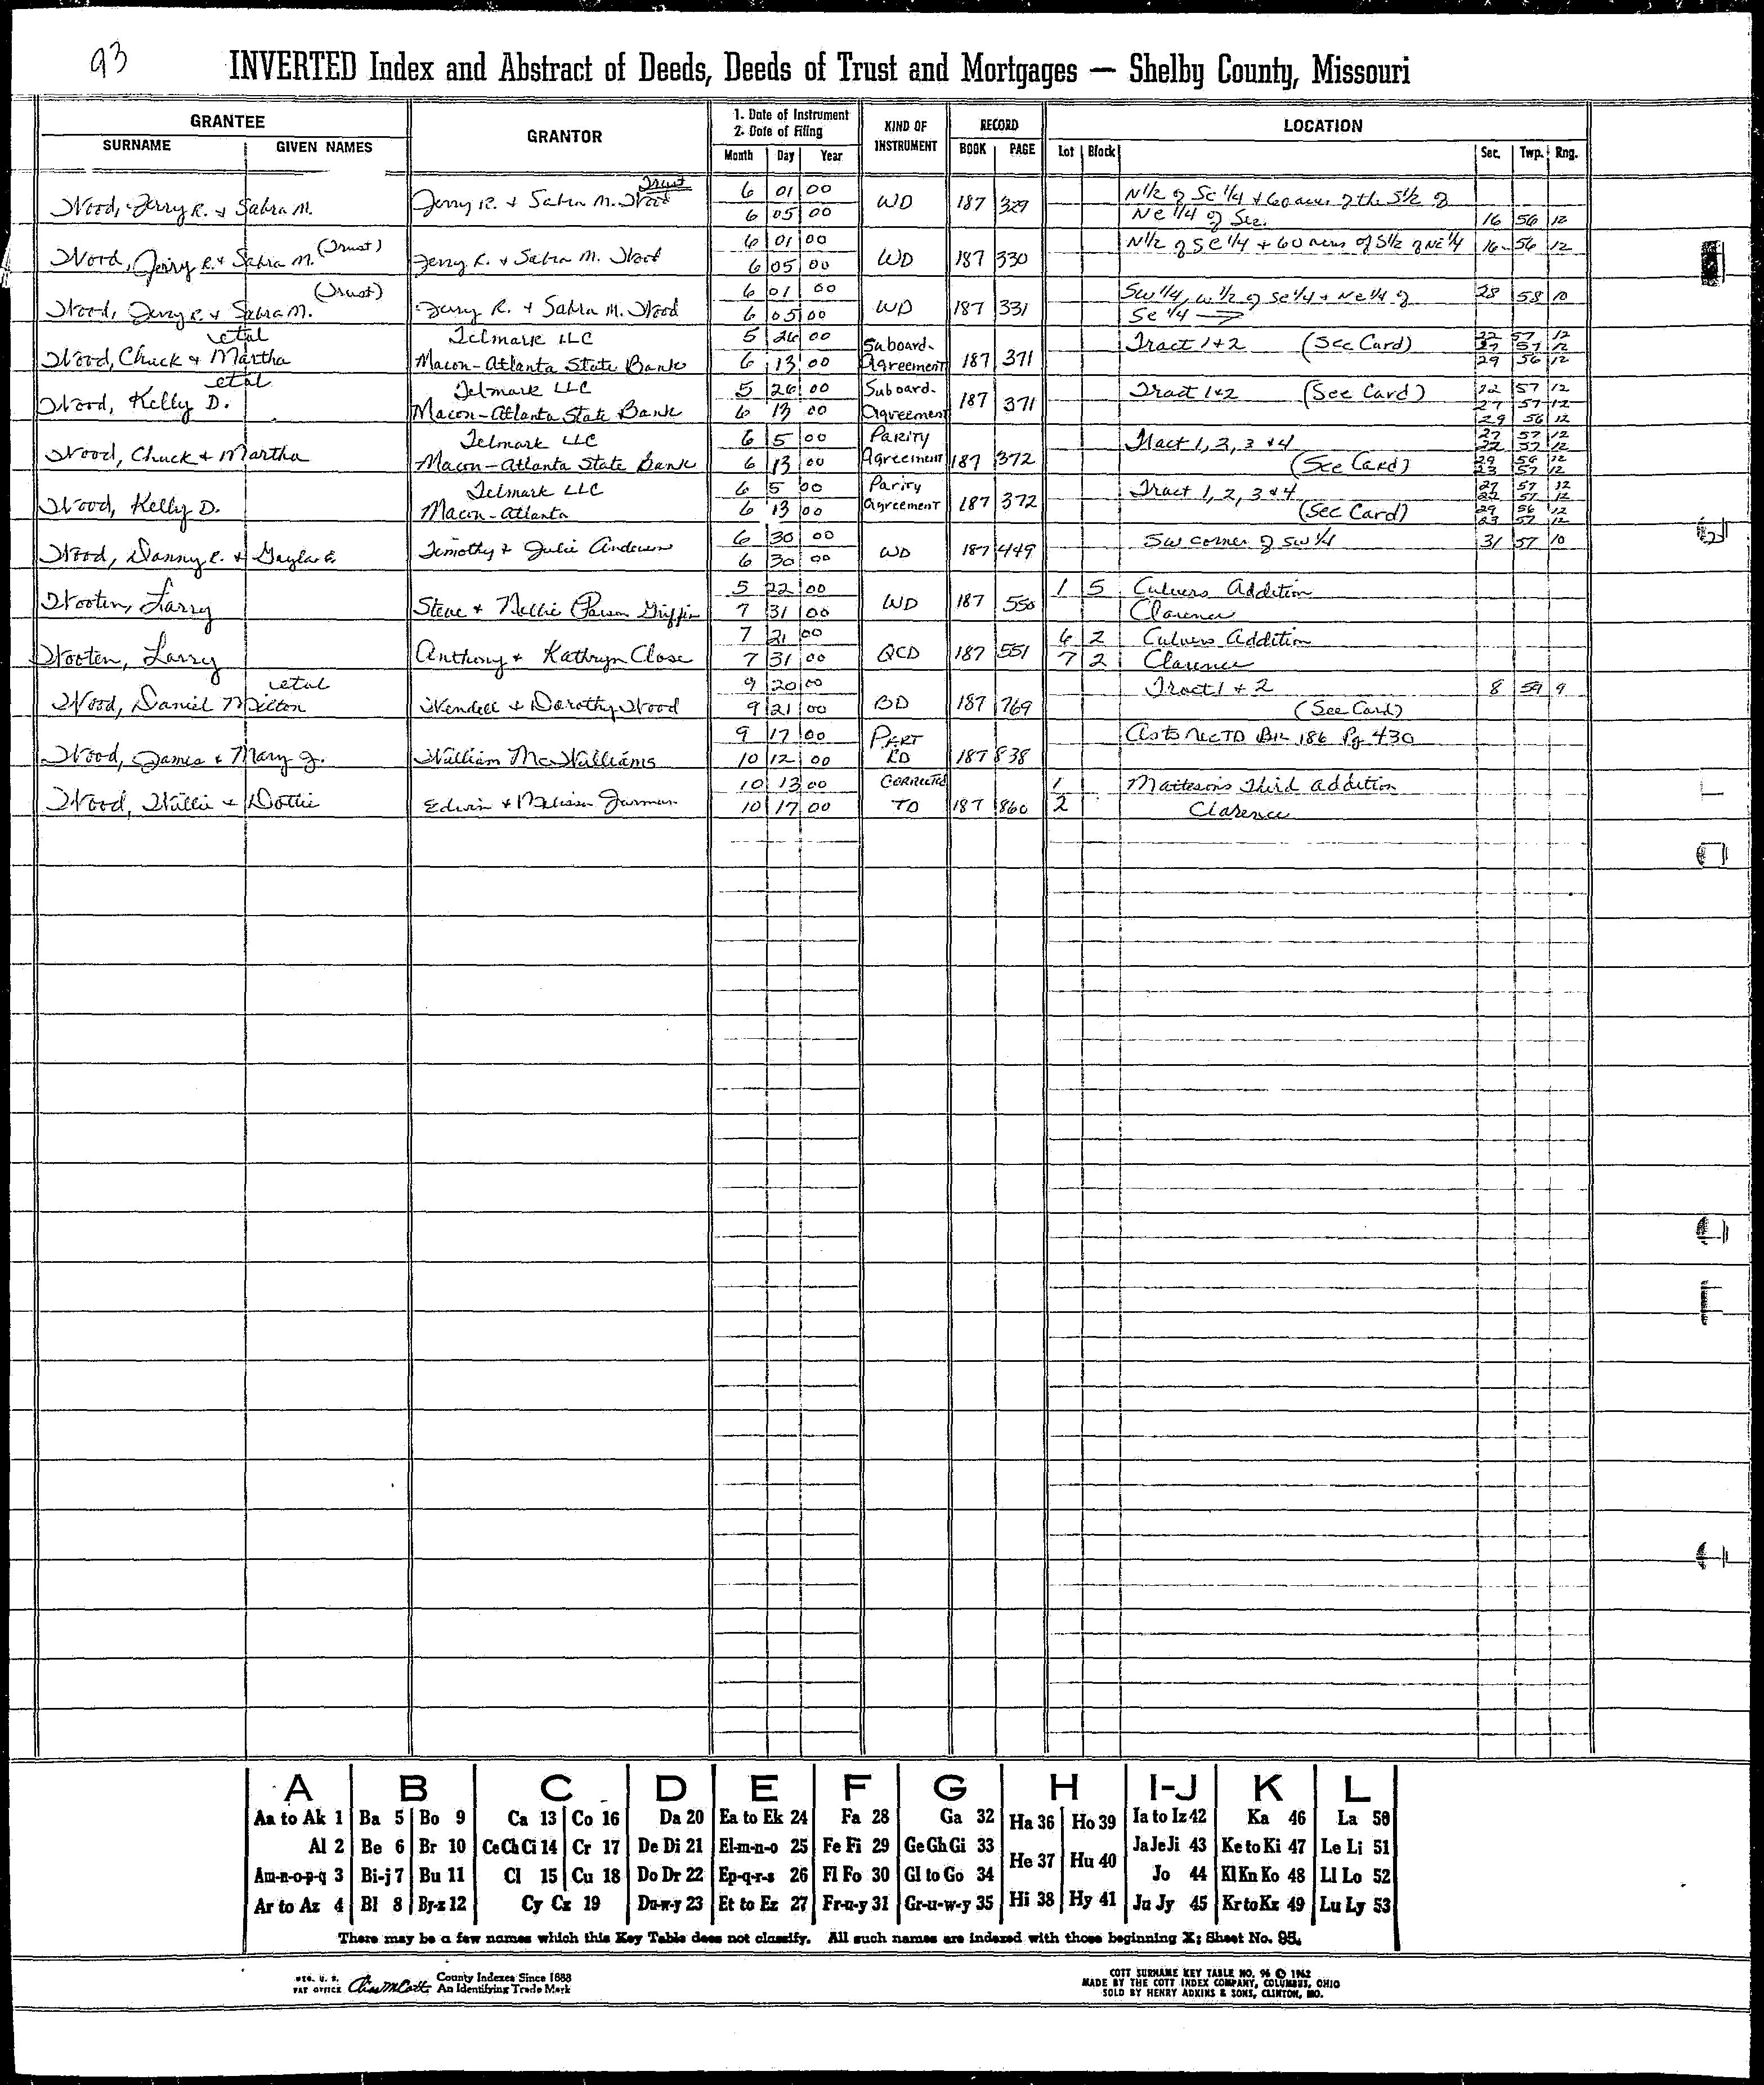 93
INVERTED Index and Abstract of Deeds, Deeds of Trust and Mortgages — Shelby County, Missouri
GRANTEE
SURNAME GIVEN NAMES
GRANTOR
1. Date of Instrument
2. Date of Filing
Month Day Year
KIND OF
INSTRUMENT
RECORD
BOOK PAGE
LOCATION
Lot Block Sec. Twp. Rng.
Trust
Wood, Jerry R. + Sabra M. Jerry R. + Sabra M. Wood 6 01 00 WD 187 329 N 1/2 of Se 1/4 + 60 acres of the S 1/2 of
6 05 00 Ne 1/4 of Sec. 16 56 12
Wood, Jerry R. + Sabra M. (Trust) Jerry R. + Sabra M. Wood 6 01 00 WD 187 330 N 1/2 of Se 1/4 + 60 acres of S 1/2 of NE 1/4 16 56 12
6 05 00
(Trust)
Wood, Jerry R. + Sabra M. Jerry R. + Sabra M. Wood 6 01 00 WD 187 331 Sw 1/4, w 1/2 of Se 1/4 + Ne 1/4 of 28 58 10
6 05 00 Se 1/4
etal Telmark LLC 5 26 00 Suboard. Tract 1+2 (See Card) 22 57 12
27 57 12
Wood, Chuck + Martha Macon-Atlanta State Bank 6 13 00 Agreement 187 371 29 56 12
etal Telmark LLC 5 26 00 Suboard. Tract 1+2 (See Card) 22 57 12
Wood, Kelly D. Macon-Atlanta State Bank 6 13 00 Agreement 187 371 27 57 12
29 56 12
Telmark LLC 6 5 00 Parity Tract 1, 2, 3 +4 27 57 12
22 57 12
Wood, Chuck + Martha Macon-Atlanta State Bank 6 13 00 Agreement 187 372 (See Card) 29 56 12
23 57 12
Telmark LLC 6 5 00 Parity Tract 1, 2, 3 +4 27 57 12
22 57 12
Wood, Kelly D. Macon-Atlanta 6 13 00 Agreement 187 372 (See Card) 29 56 12
23 57 12
Wood, Danny E. + Gayla E. Timothy + Julie Andersen 6 30 00 WD 187 449 Sw corner of Sw 1/4 31 57 10
6 30 00
Wooten, Larry Steve + Nellie Parson Griffin 5 22 00 WD 187 550 1 5 Culvers Addition
7 31 00 Clarence
Wooten, Larry Anthony + Kathryn Close 7 21 00 QCD 187 551 6 2 Culvers Addition
7 31 00 7 2 Clarence
etal 9 20 00 Tract 1 + 2 8 59 9
Wood, Daniel Milton Wendell + Dorothy Wood 9 21 00 BD 187 769 (See Card)
9 17 00 PART As to Rec TD Bk 186 Pg 430
Wood, James + Mary J. William McWilliams 10 12 00 RD 187 838
10 13 00 CORRECTED 1 Matteson's Third Addition
Wood, Willie + Dottie Edwin + Melissa Jarman 10 17 00 TD 187 860 2 Clarence
A B C D E F G H I-J K L
Aa to Ak 1 Ba 5 Bo 9 Ca 13 Co 16 Da 20 Ea to Ek 24 Fa 28 Ga 32 Ha 36 Ho 39 Ia to Iz 42 Ka 46 La 50
Al 2 Be 6 Br 10 Ce Ch Ci 14 Cr 17 De Di 21 El-m-n-o 25 Fe Fi 29 Ge Gh Gi 33 He 37 Hu 40 Ja Je Ji 43 Ke to Ki 47 Le Li 51
Am-n-o-p-q 3 Bi-j 7 Bu 11 Cl 15 Cu 18 Do Dr 22 Ep-q-r-s 26 Fl Fo 30 Gl to Go 34 Jo 44 Kl Kn Ko 48 Ll Lo 52
Ar to Az 4 Bl 8 By-z 12 Cy Cz 19 Du-w-y 23 Et to Ez 27 Fr-u-y 31 Gr-u-w-y 35 Hi 38 Hy 41 Ju Jy 45 Kr to Kz 49 Lu Ly 53
There may be a few names which this Key Table does not classify. All such names are indexed with those beginning X; Sheet No. 95.
REG. U. S. PAT OFFICE
County Indexes Since 1888
An Identifying Trade Mark
COTT SURNAME KEY TABLE NO. 96 © 1962
MADE BY THE COTT INDEX COMPANY, COLUMBUS, OHIO
SOLD BY HENRY ADKINS & SONS, CLINTON, MO.